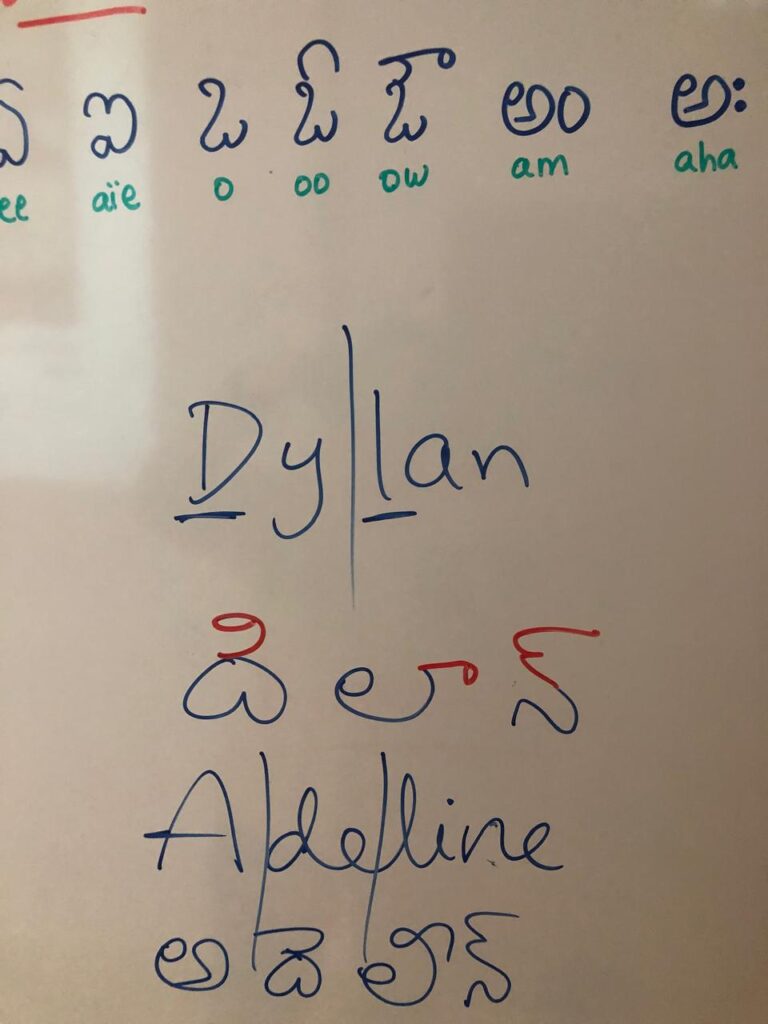 ఏ ఐ ఒ ఓ ఔ అం అః
ee aïe o oo ow am aha
Dylan
దిలాన్
Adeline
అదెలీన్